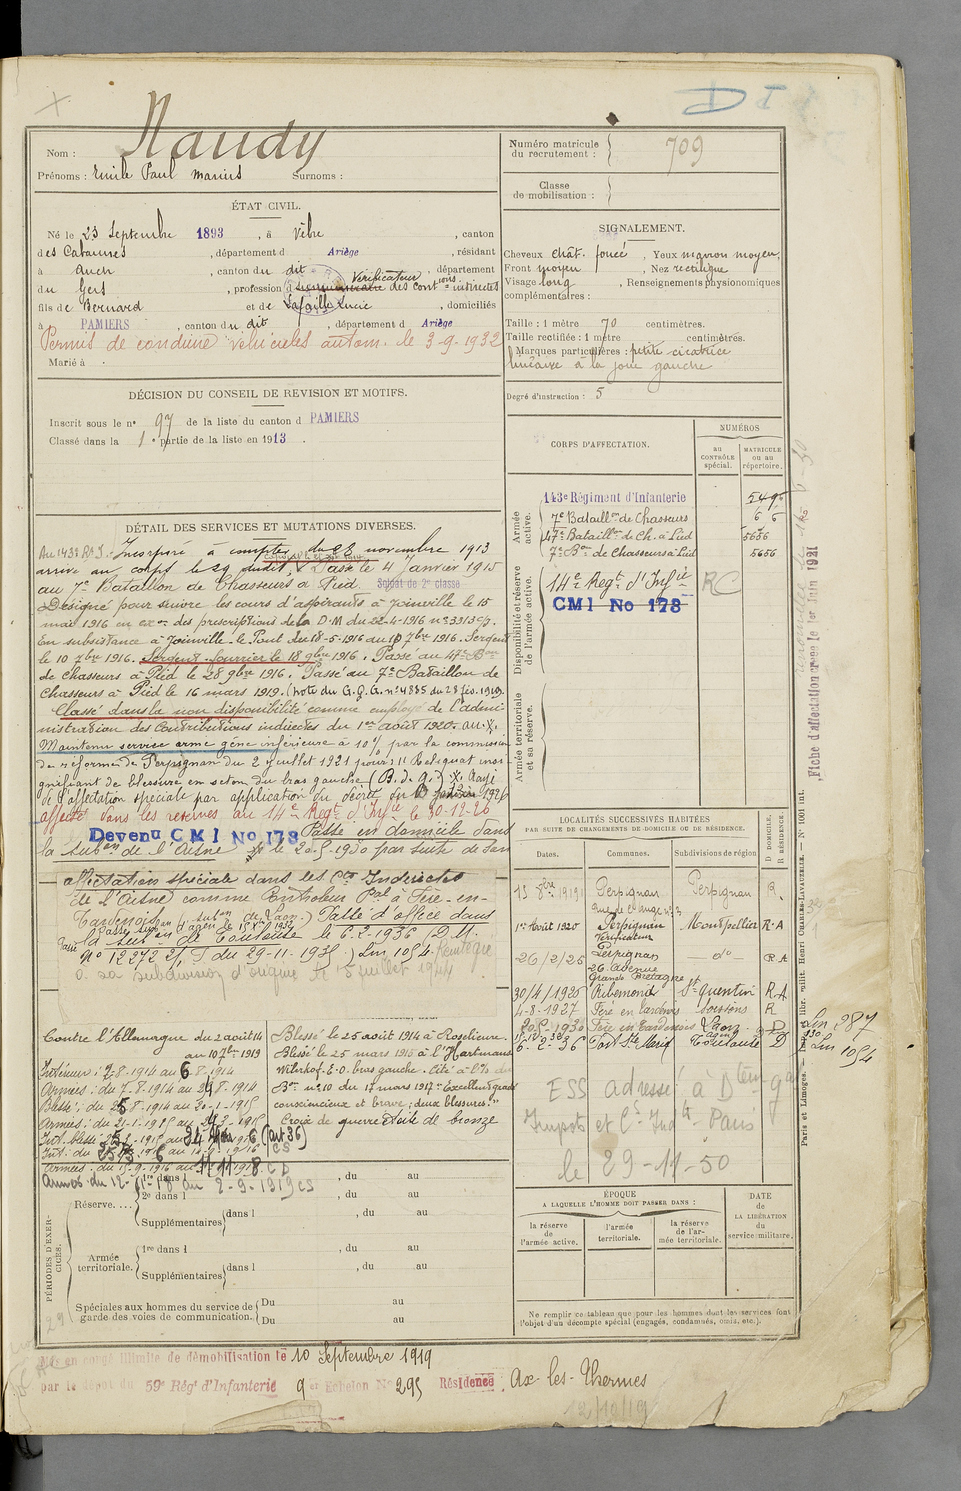 D I
Nom : Naudy
Prénoms : Emile Paul Marius Surnoms :
Numéro matricule du recrutement : 709
Classe de mobilisation :
ÉTAT CIVIL.
Né le 23 Septembre 1893, à Vèbre, canton
des Cabannes, département d Ariège, résidant
à Auch, canton du dit, département
du Gers, profession d Vérificateur des Cont.ions indirectes
fils de Bernard et de Lafaille Lucie, domiciliés
à PAMIERS, canton du dit, département d Ariège
Permis de conduire véhicules autom. le 3-9-1932
Marié à
SIGNALEMENT.
Cheveux chât. foncé, Yeux marron moyen,
Front moyen, Nez rectiligne
Visage long, Renseignements physionomiques
complémentaires :
Taille : 1 mètre 70 centimètres.
Taille rectifiée : 1 mètre centimètres.
Marques particulières : petite cicatrice
linéaire à la joue gauche
Degré d'instruction : 5
DÉCISION DU CONSEIL DE REVISION ET MOTIFS.
Inscrit sous le n° 97 de la liste du canton d PAMIERS
Classé dans la 1e partie de la liste en 1913.
DÉTAIL DES SERVICES ET MUTATIONS DIVERSES.
Au 143e R.I. Incorporé à compter du 28 novembre 1913
arrivé au corps le 29 dudit, Passé le 4 Janvier 1915
au 7e Bataillon de Chasseurs à Pied. Soldat de 2e classe
Désigné pour suivre les cours d'aspirants à Joinville le 15
mai 1916 en exon des prescriptions de la D.M du 22-4-1916 n° 3313 c/7.
En subsistance à Joinville-le-Pont du 18-5-1916 au 10 7bre 1916. Sergent
le 10 7bre 1916. Sergent fourrier le 18 9bre 1916. Passé au 47e Bon
de chasseurs à Pied le 28 9bre 1916. Passé au 7e Bataillon de
chasseurs à Pied le 16 mars 1919. (Note du G.Q.G. n° 4885 du 28 fév. 1919)
Classé dans la non disponibilité comme employé de l'admi-
nistration des Contributions indirectes du 1er août 1920.
Maintenu service armé gêne inférieure à 10% par la commission
de réforme de Perpignan du 2 juillet 1921 pour : 1° Reliquat insi-
gnifiant de blessure en seton du bras gauche (B. de g.) Rayé
de l'affectation spéciale par application du décret du 1926
affecté dans les réserves au 14e Regt d'Inf.ie le 30-12-26
Devenu C M I No 178 Passé en domicile dans
la subon de l'Aisne le 20-5-1930 par suite de son
affectation spéciale dans les Cto Indirectes
de l'Aisne comme Contrôleur Pal à Fère-en-
Tardenois (subon de Laon.) Passé d'office dans
la subon de Toulouse le 6-2-1936 (D.M.
N° 12272 du 29-11-1935.) Lm 1054 Réintégré
à sa subdivision d'origine le 5 juillet 1944
CORPS D'AFFECTATION.
NUMÉROS
au CONTRÔLE spécial. MATRICULE ou au répertoire.
Armée active.
143e Régiment d'Infanterie
7e Bataillon de Chasseurs 66
47e Bataillon de Ch. à Pied 5656
7e Bon de Chasseurs à Pied 5656
Disponibilité et réserve de l'armée active.
14e Regt d'Infie RC
CMI No 178
Armée territoriale et sa réserve.
Fiche d'affectation créée le 1er Juin 1921
LOCALITÉS SUCCESSIVES HABITÉES
PAR SUITE DE CHANGEMENTS DE DOMICILE OU DE RÉSIDENCE.
Dates. Communes. Subdivisions de région D DOMICILE. R RÉSIDENCE.
15 8bre 1919 Perpignan Perpignan R.
Rue de l'ange n° 3
1er Août 1920 Perpignan Montpellier R.A
Vérificateur
26/2/26 Perpignan — d° — R A
26 Avenue
Grande Bretagne
30/4/1926 Ribemont St Quentin R.A
4-8-1927 Fère en Tardenois Soissons R
20-5-1930 Fère en Tardenois Laon D
6-2-36 Port Ste Marie Toulouse D
Lm 287
Lm 1054
ESS adressé à Dtem Gal
Impots et Cs Indtes Paris
le 29-11-50
Contre l'Allemagne du 2 août 14
au 10 7bre 1919
Intérieur : 2-8-1914 au 6-8-1914
Armées : du 7-8-1914 au 24-8-1914
Blessé : du 25-8-1914 au 20-1-1915
Blessé le 25 août 1914 à Roselieure.
Blessé le 25 mars 1915 à l'Hartmans-
Wilerkof. E.O. bras gauche. Cité à l'O. du
Bon n° 10 du 17 mars 1917 "Excellent gradé
consciencieux et brave ; deux blessures."
Croix de guerre étoile de bronze
PÉRIODES D'EXERCICES.
Réserve....
1re dans l , du au
2e dans l , du au
Supplémentaires dans l , du au
Armée territoriale.
1re dans l , du au
Supplémentaires dans l , du au
Spéciales aux hommes du service de garde des voies de communication.
Du au
Du au
ÉPOQUE
A LAQUELLE L'HOMME DOIT PASSER DANS :
la réserve de l'armée active. l'armée territoriale. la réserve de l'armée territoriale.
DATE de LA LIBÉRATION du service militaire.
Ne remplir ce tableau que pour les hommes dont les services font
l'objet d'un décompte spécial (engagés, condamnés, omis, etc.).
Paris et Limoges. — Imp. libr. milit. Henri CHARLES-LAVAUZELLE. — N° 1001 int.
Mis en congé illimité de démobilisation le 10 Septembre 1919
par le dépôt du 59e Régt d'Infanterie 9e Echelon N° 295 Résidence, Ax-les-Thermes
12/10/19